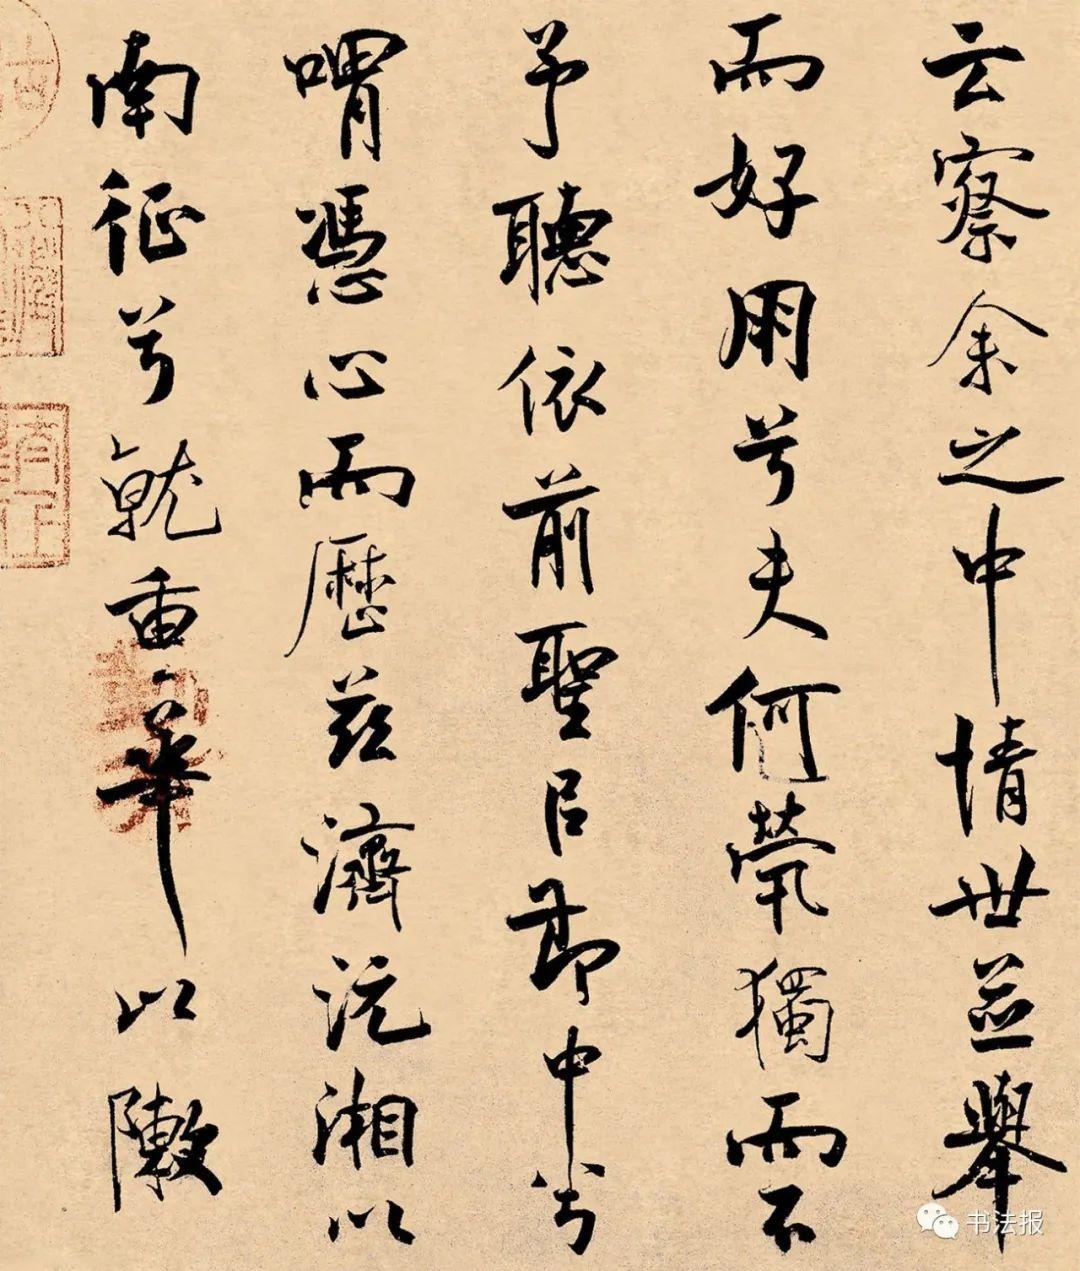 云察余之中情世並舉
而好朋兮夫何煢獨而不
予聽依前聖㠯節中兮
喟憑心而歷茲濟沅湘以
南征兮就重華以敶
书法报